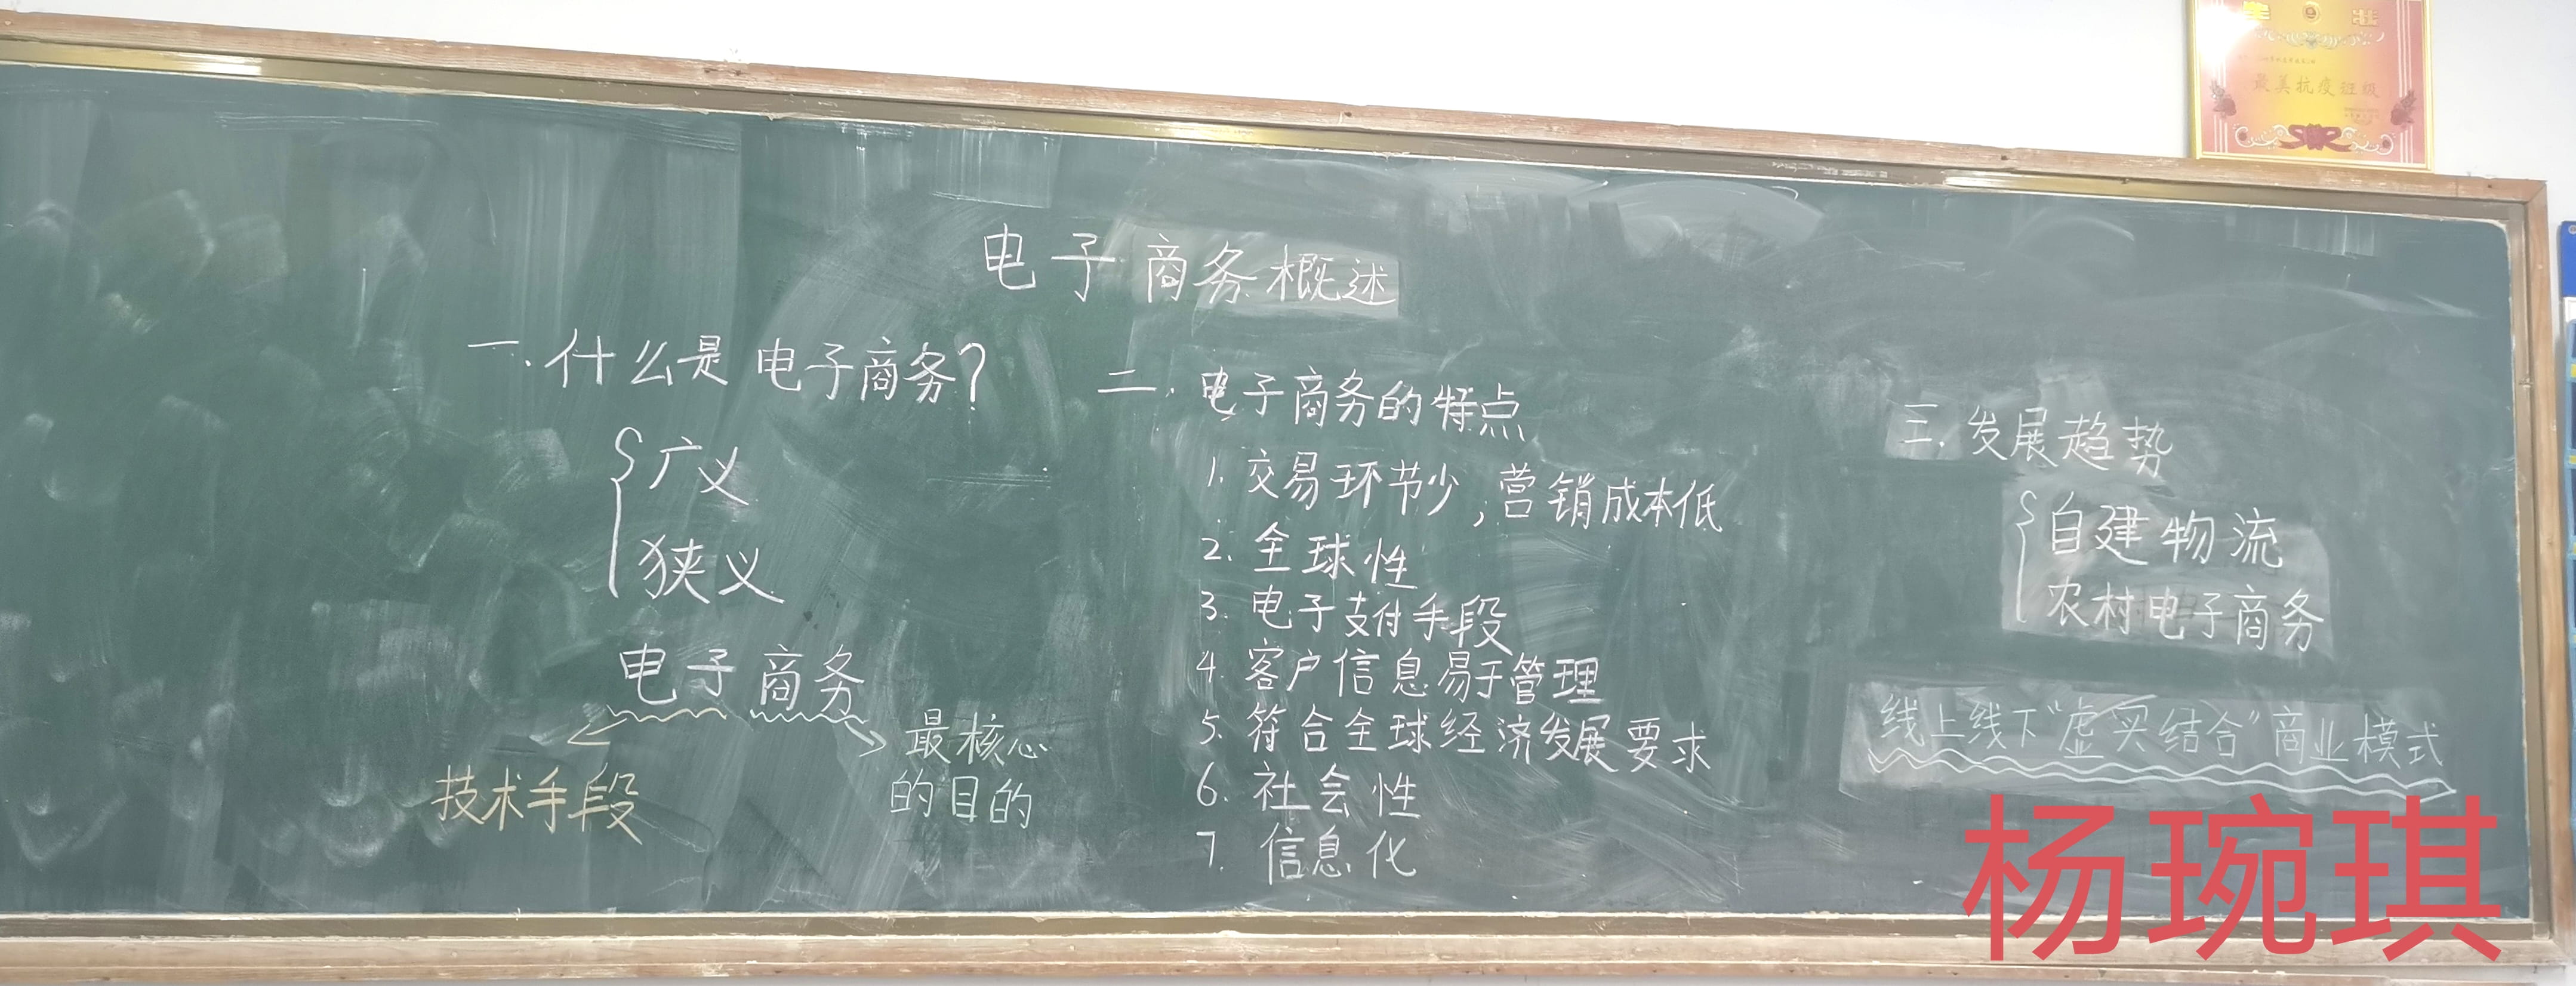 奖 状
最美抗疫班级
电子商务概述
一.什么是电子商务?
广义
狭义
电子商务
技术手段
最核心
的目的
二.电子商务的特点
1.交易环节少,营销成本低
2.全球性
3.电子支付手段
4.客户信息易于管理
5.符合全球经济发展要求
6.社会性
7.信息化
三.发展趋势
自建物流
农村电子商务
线上线下“虚实结合”商业模式
杨琬琪